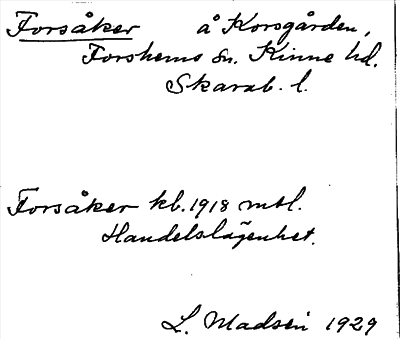 Forsåker å Korsgården,
Forshems sn. Kinne hd.
Skarab. l.
Forsåker kb. 1918 mtl.
Handelslägenhet.
L. Madsén 1929